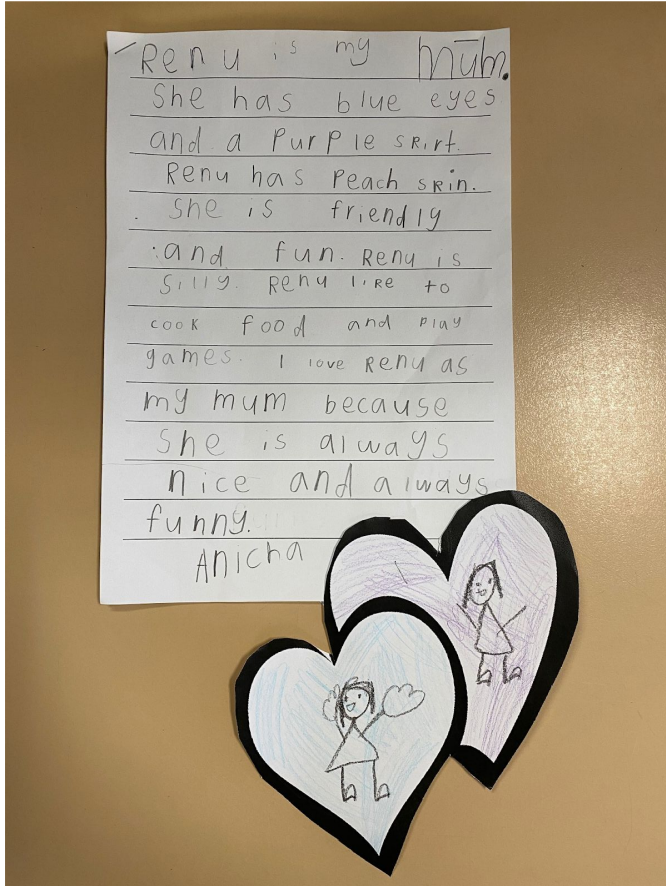 Renu is my mum.
She has blue eyes
and a Purple sRirt.
Renu has Peach sRin.
She is friendly
and fun. Renu is
Silly. Renu liRe to
cook food and play
games. I love Renu as
my mum because
she is always
nice and always
funny.
Anicha